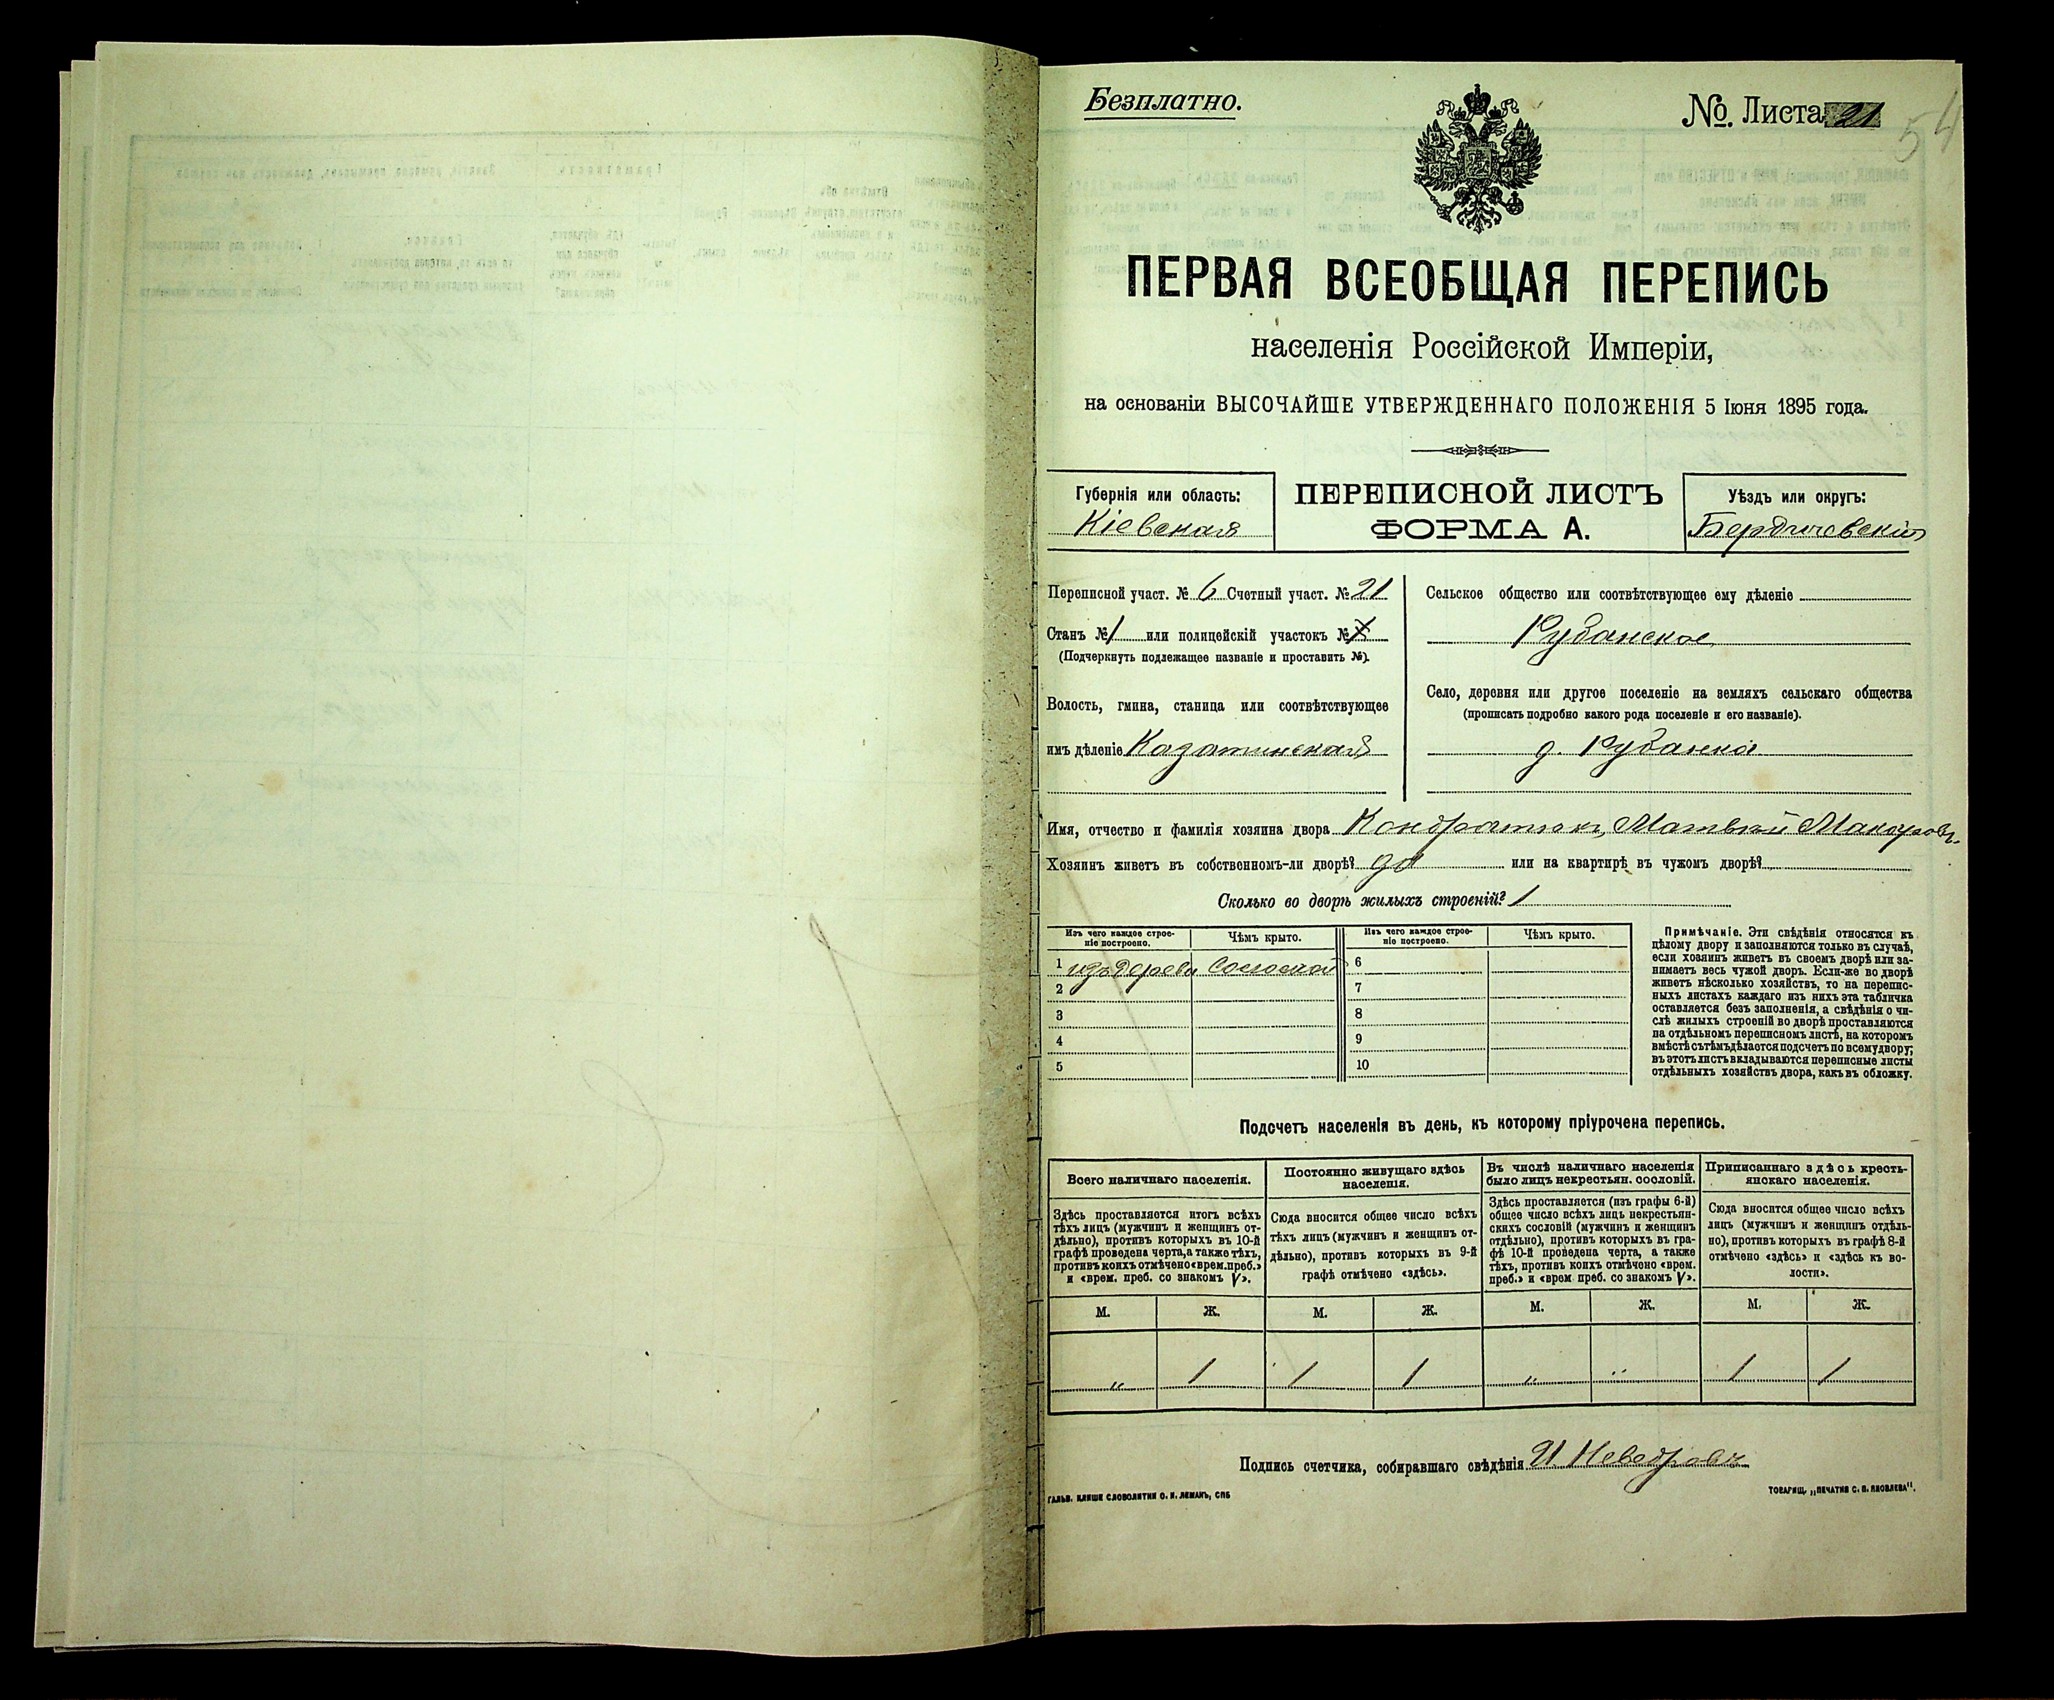 Безплатно.
№. Листа 21
54
ПЕРВАЯ ВСЕОБЩАЯ ПЕРЕПИСЬ
населенія Россійской Имперіи,
на основаніи ВЫСОЧАЙШЕ УТВЕРЖДЕННАГО ПОЛОЖЕНІЯ 5 Іюня 1895 года.
Губернія или область:
Кіевская
ПЕРЕПИСНОЙ ЛИСТЪ
ФОРМА А.
Уѣздъ или округъ:
Бердичевскій
Переписной участ. № 6 Счетный участ. № 21
Станъ № 1 или полицейскій участокъ №
(Подчеркнуть подлежащее названіе и проставить №).
Волость, гмина, станица или соотвѣтствующее
имъ дѣленіе Казатинская
Сельское общество или соотвѣтствующее ему дѣленіе
Рубанское
Село, деревня или другое поселеніе на земляхъ сельскаго общества
(прописать подробно какого рода поселеніе и его названіе).
д. Рубанка
Имя, отчество и фамилія хозяина двора Кондратюкъ, Матвѣй Макаровъ.
Хозяинъ живетъ въ собственномъ-ли дворѣ? да или на квартирѣ въ чужомъ дворѣ?
Сколько во дворѣ жилыхъ строеній? 1
Изъ чего каждое строе-
ніе построено.
Чѣмъ крыто.
Изъ чего каждое строе-
ніе построено.
Чѣмъ крыто.
1 изъ дерева Соломой 6
2 7
3 8
4 9
5 10
Примѣчаніе. Эти свѣдѣнія относятся къ
цѣлому двору и заполняются только въ случаѣ,
если хозяинъ живетъ въ своемъ дворѣ или за-
нимаетъ весь чужой дворъ. Если-же во дворѣ
живетъ нѣсколько хозяйствъ, то на перепис-
ныхъ листахъ каждаго изъ нихъ эта табличка
оставляется безъ заполненія, а свѣдѣнія о чи-
слѣ жилыхъ строеній во дворѣ проставляются
на отдѣльномъ переписномъ листѣ, на которомъ
вмѣстѣ съ тѣмъ дѣлается подсчетъ по всему двору;
въ этотъ листъ вкладываются переписные листы
отдѣльныхъ хозяйствъ двора, какъ въ обложку.
Подсчетъ населенія въ день, къ которому пріурочена перепись.
Всего наличнаго населенія.
Здѣсь проставляется итогъ всѣхъ
тѣхъ лицъ (мужчинъ и женщинъ от-
дѣльно), противъ которыхъ въ 10-й
графѣ проведена черта, а также тѣхъ,
противъ коихъ отмѣчено «врем. преб.»
и «врем. преб. со знакомъ V».
Постоянно живущаго здѣсь
населенія.
Сюда вносится общее число всѣхъ
тѣхъ лицъ (мужчинъ и женщинъ от-
дѣльно), противъ которыхъ въ 9-й
графѣ отмѣчено «здѣсь».
Въ числѣ наличнаго населенія
было лицъ некрестьян. сословій.
Здѣсь проставляется (изъ графы 6-й)
общее число всѣхъ лицъ некрестьян-
скихъ сословій (мужчинъ и женщинъ
отдѣльно), противъ которыхъ въ гра-
фѣ 10-й проведена черта, а также
тѣхъ, противъ коихъ отмѣчено «врем.
преб.» и «врем преб. со знакомъ V».
Приписаннаго здѣсь кресть-
янскаго населенія.
Сюда вносится общее число всѣхъ
лицъ (мужчинъ и женщинъ отдѣль-
но), противъ которыхъ въ графѣ 8-й
отмѣчено «здѣсь» и «здѣсь къ во-
лости».
М. Ж. М. Ж. М. Ж. М. Ж.
„ 1 1 1 „ „ 1 1
Подпись счетчика, собиравшаго свѣдѣнія И. Невѣдровъ
ГАЛЬВ. КЛИШЕ СЛОВОЛИТНИ О. И. ЛЕМАНЪ, СПБ
ТОВАРИЩ. „ПЕЧАТНЯ С. П. ЯКОВЛЕВА“.